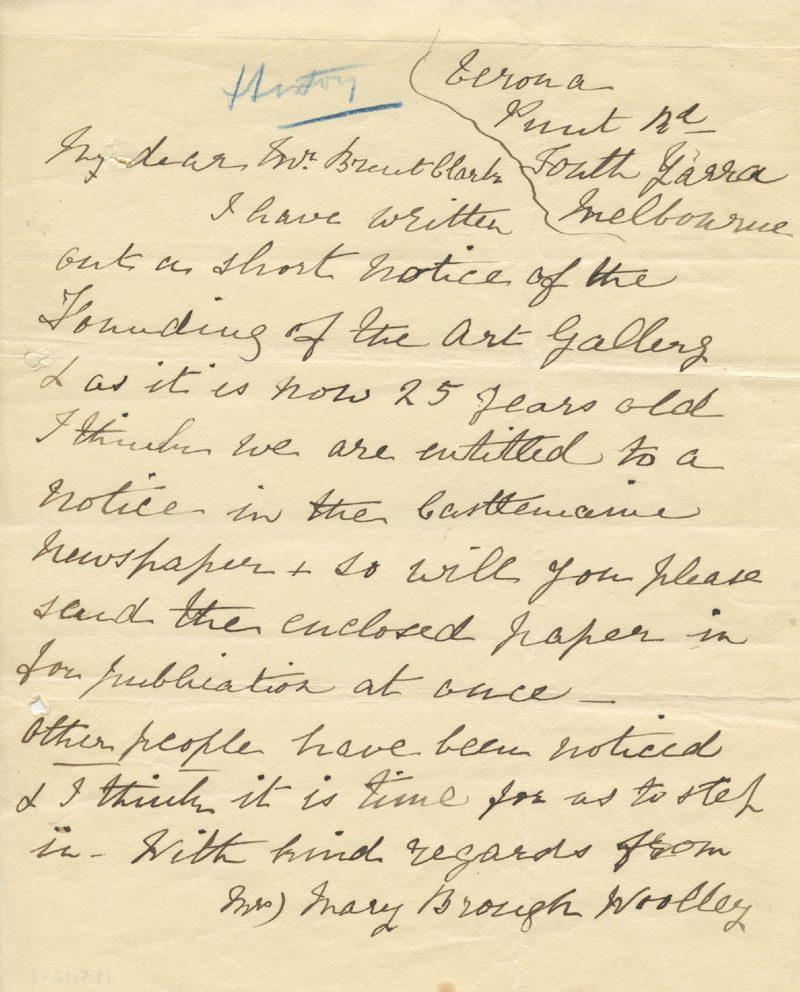 History
Verona
Punt Rd
South Yarra
Melbourne
My dear Mr. Brent Clark
I have written
out a short notice of the
Founding of the Art Gallery
& as it is now 25 years old
I think we are entitled to a
notice in the Castlemaine
newspaper & so will you please
send the enclosed paper in
for publication at once –
Other people have been noticed
& I think it is time for us to step
in – With kind regards from
Mrs) Mary Brough Woolley